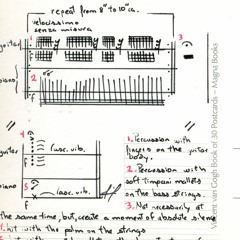 repeat from 8" to 10" ca.
velocissimo
senza misura
1
3
guitar
piano
2
f
4
guitar
lasc. vib.
piano
5
lasc. vib.
f
1. Percussion with
fingers on the guitar
body.
2. Percussion with
soft timpani mallets
on the bass strings.
3. Not necessarily at
the same time, but create a moment of absolute silence
4. hit with the palm on the strings
Vincent van Gogh Book of 30 Postcards – Magna Books